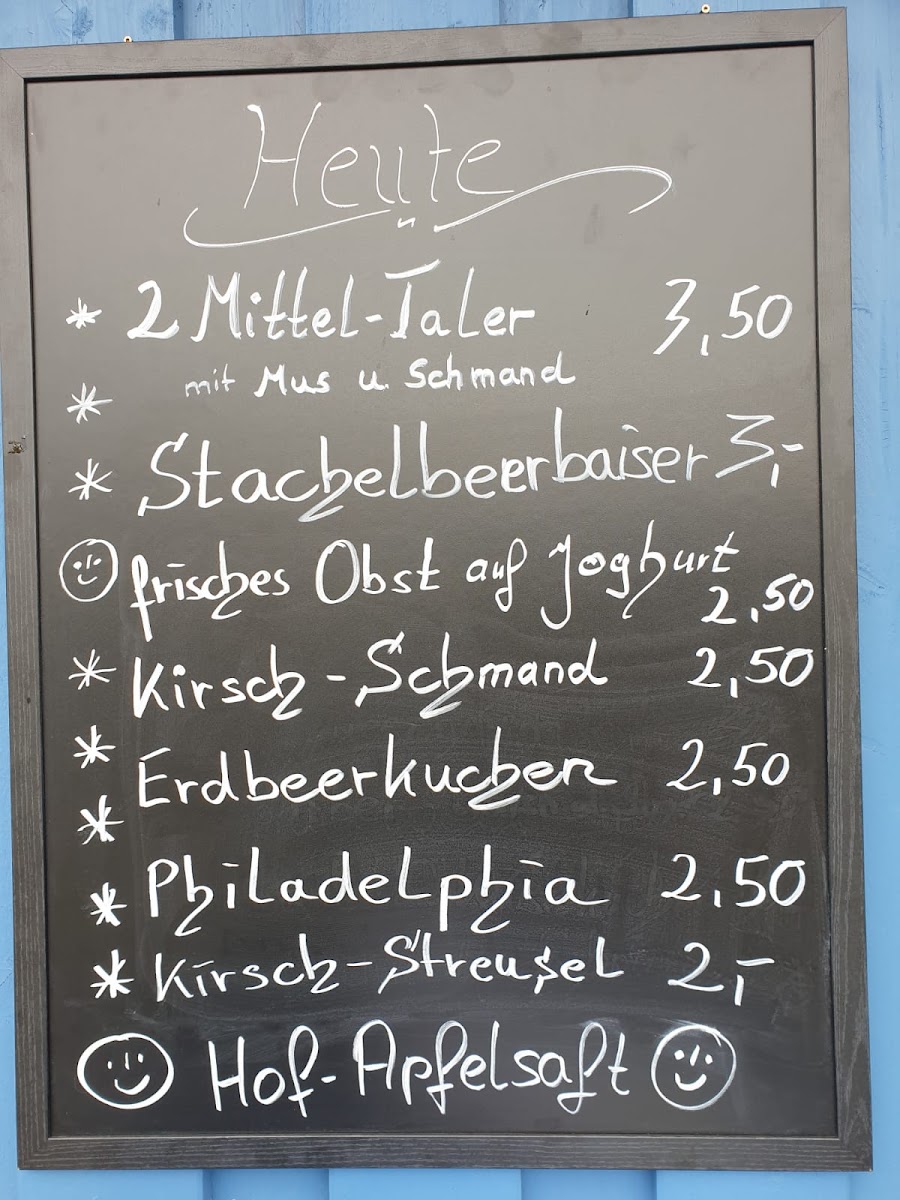 Heute
* 2 Mittel-Taler 3,50
* mit Mus u. Schmand
* Stachelbeerbaiser 3,-
frisches Obst auf Joghurt
2,50
* Kirsch-Schmand 2,50
* Erdbeerkuchen 2,50
* Philadelphia 2,50
* Kirsch-Streusel 2,-
Hof-Apfelsaft